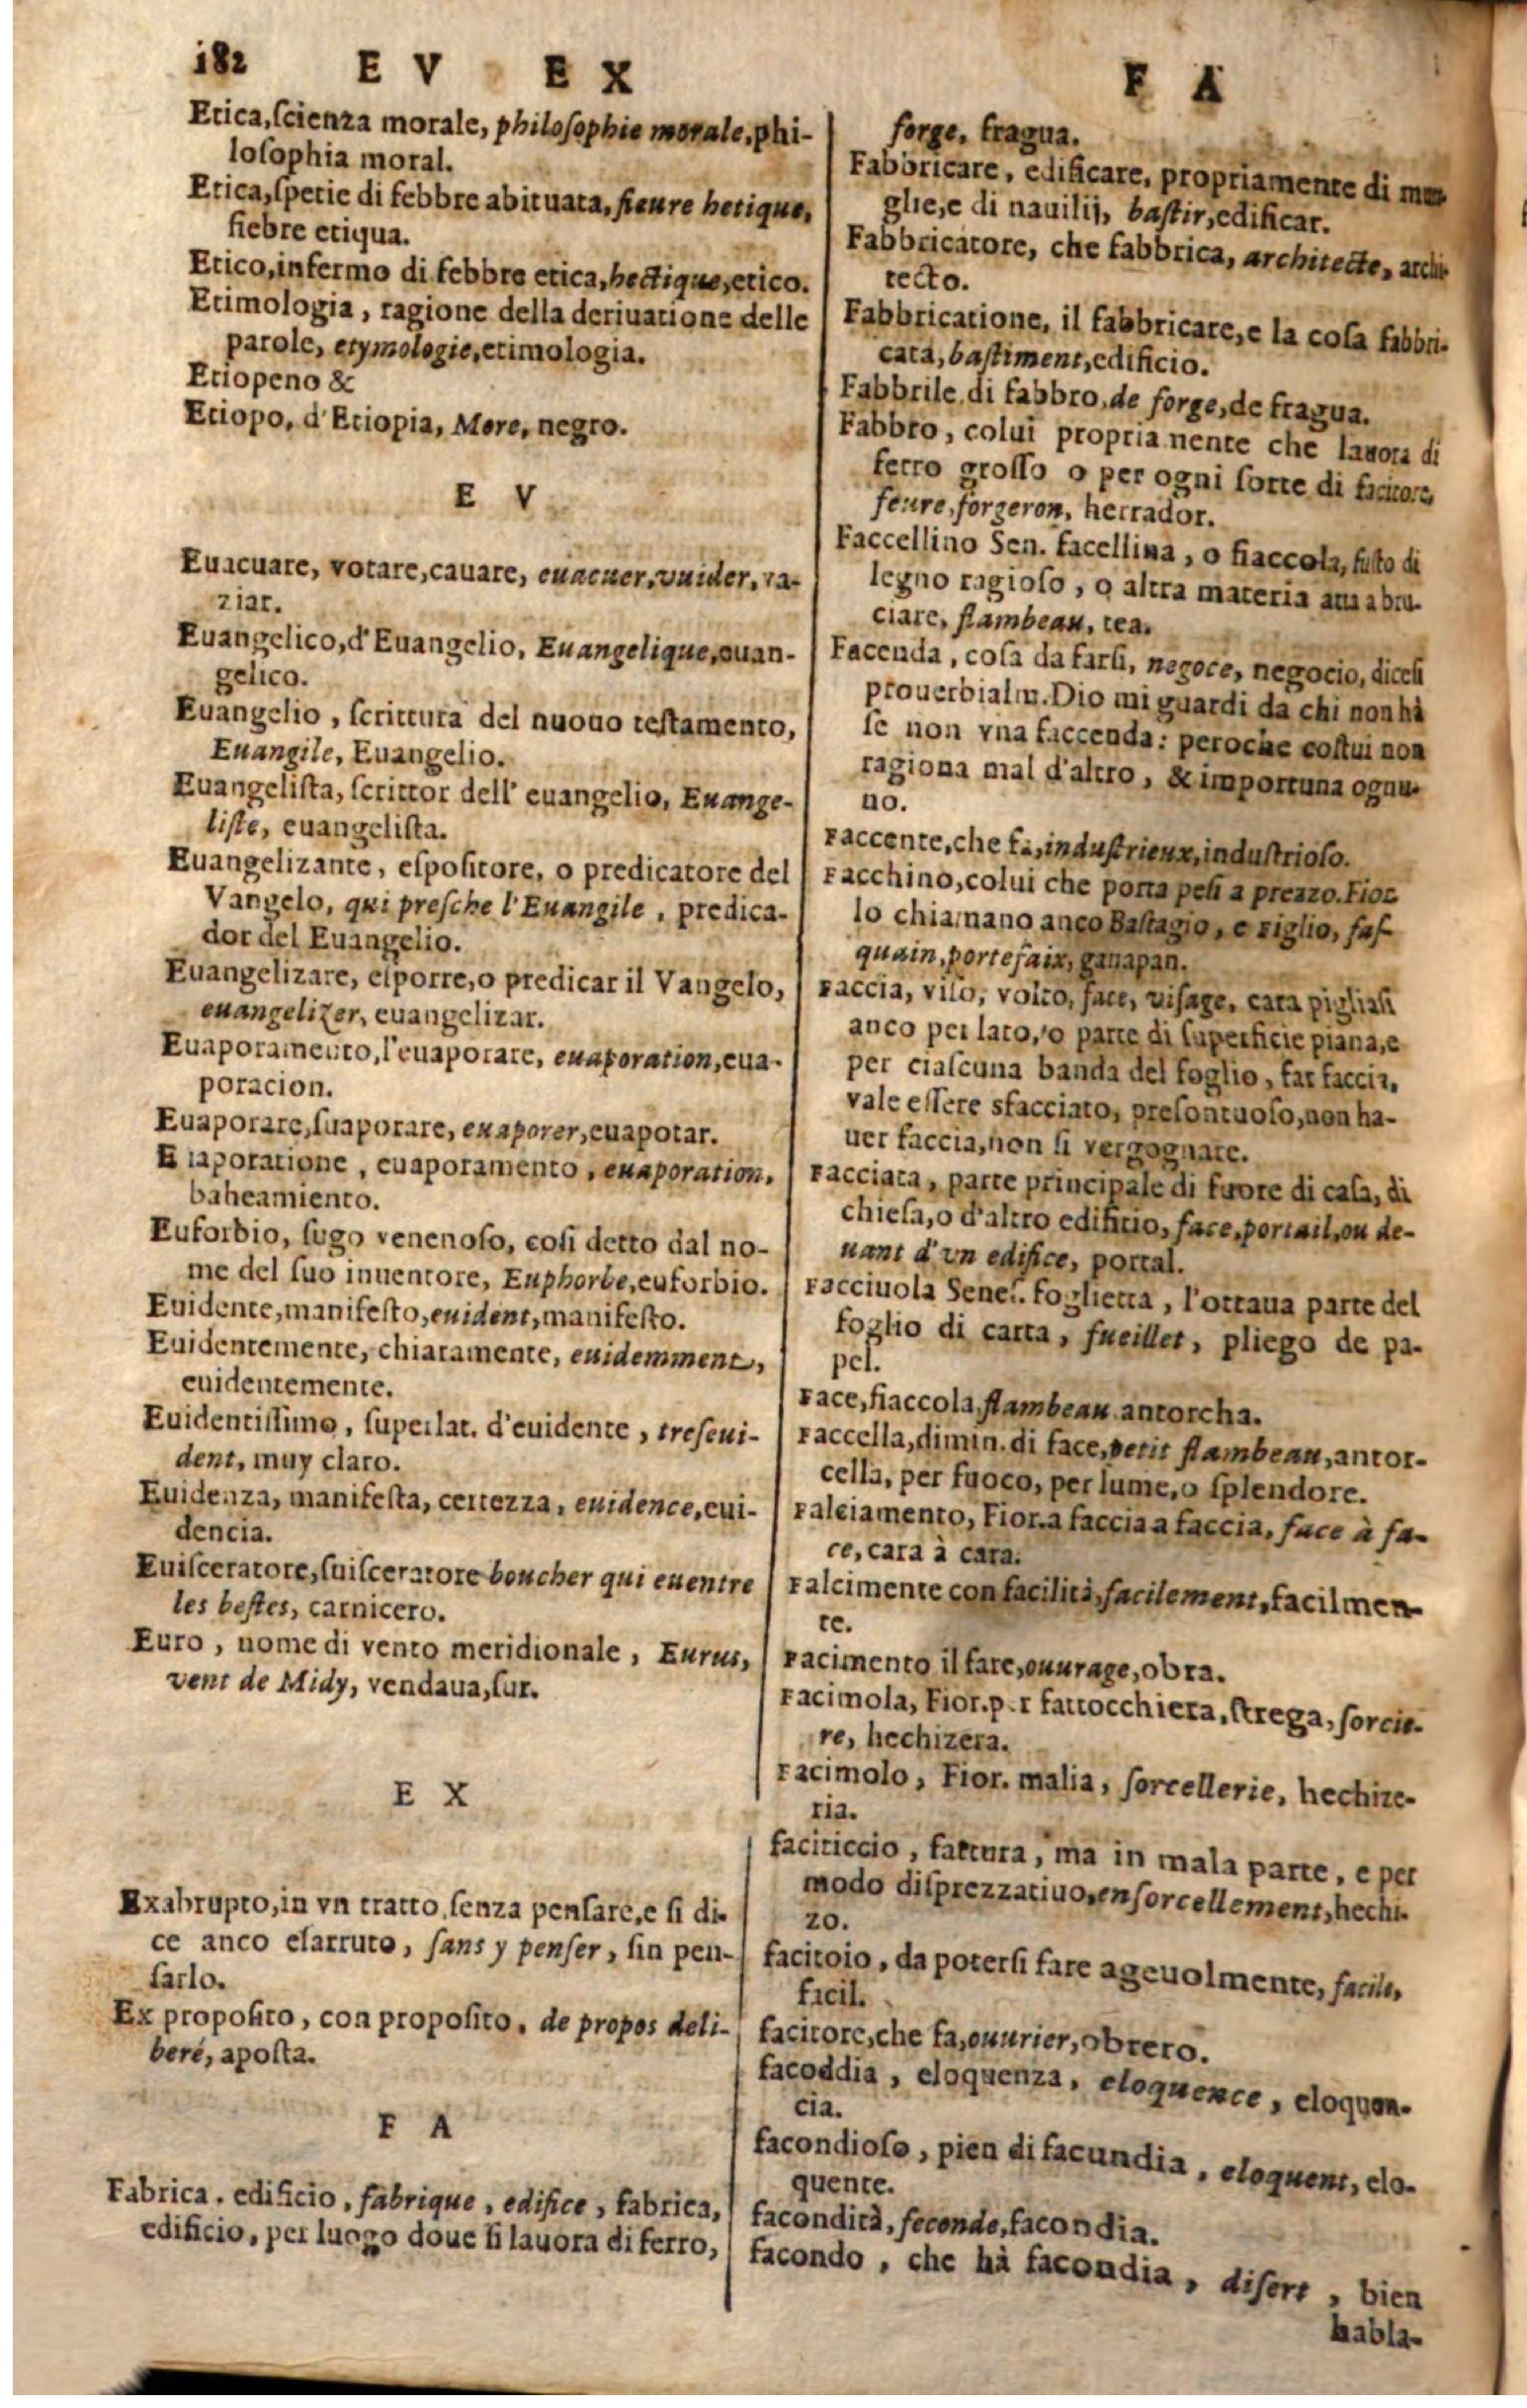 182 E V E X F A
Etica,ſcienza morale, philoſophie morale,phi-
loſophia moral.
Etica,ſpetie di febbre abituata, fieure hetique,
fiebre etiqua.
Etico,infermo di febbre etica,hectique,etico.
Etimologia , ragione della deriuatione delle
parole, etymologie,etimologia.
Etiopeno &
Etiopo, d'Etiopia, More, negro.
E V
Euacuare, votare,cauare, euacuer,vuider, va-
ziar.
Euangelico,d'Euangelio, Euangelique,euan-
gelico.
Euangelio , ſcrittura del nuouo teſtamento,
Euangile, Euangelio.
Euangeliſta, ſcrittor dell' euangelio, Euange-
liſte, euangeliſta.
Euangelizante, eſpoſitore, o predicatore del
Vangelo, qui preſche l'Euangile , predica-
dor del Euangelio.
Euangelizare, eſporre,o predicar il Vangelo,
euangelizer, euangelizar.
Euaporamento,l'euaporare, euaporation,eua-
poracion.
Euaporare,ſuaporare, euaporer,euapotar.
E iaporatione , euaporamento , euaporation,
baheamiento.
Euforbio, ſugo venenoſo, coſi detto dal no-
me del ſuo inuentore, Euphorbe,euforbio.
Euidente,manifeſto,euident,manifeſto.
Euidentemente, chiaramente, euidemment,
euidentemente.
Euidentiſſimo , ſuperlat. d'euidente , treſeui-
dent, muy claro.
Euidenza, manifeſta, certezza , euidence,eui-
dencia.
Euiſceratore,ſuiſceratore boucher qui euentre
les beſtes, carnicero.
Euro , nome di vento meridionale , Eurus,
vent de Midy, vendaua,ſur.
E X
Exabrupto,in vn tratto ſenza penſare,e ſi di-
ce anco eſarruto, ſans y penſer , ſin pen-
ſarlo.
Ex propoſito , con propoſito , de propos deli-
beré, apoſta.
F A
Fabrica . edificio , fabrique , edifice , fabrica,
edificio, per luogo doue ſi lauora di ferro,
forge, fragua.
Fabbricare , edificare, propriamente di mu-
glie,e di nauilij, baſtir,edificar.
Fabbricatore, che fabbrica, architecte, archi-
tecto.
Fabbricatione, il fabbricare,e la coſa fabbri-
cata, baſtiment,edificio.
Fabbrile di fabbro, de forge,de fragua.
Fabbro , colui propria nente che lauora di
ferro groſſo o per ogni ſorte di facitore,
feure,forgeron, herrador.
Faccellino Sen. facellina , o fiaccola, fuſto di
legno ragioſo , o altra materia atta a bru-
ciare, flambeau, tea.
Facenda , coſa da farſi, negoce, negocio, diceſi
prouerbialm. Dio mi guardi da chi non hà
ſe non vna faccenda : peroche coſtui non
ragiona mal d'altro , & importuna ognu-
no.
Faccente,che fa,induſtrieux,induſtrioſo.
Facchino,colui che porta peſi a prezzo. Fior.
lo chiamano anco Baſtagio, e ziglio, faſ-
quain,portefaix, ganapan.
Faccia, viſo, volto, face, viſage, cara pigliaſi
anco per lato, o parte di ſuperficie piana,e
per ciaſcuna banda del foglio, far faccia,
vale eſſere sfacciato, preſontuoſo,non ha-
uer faccia,non ſi vergognare.
Facciata , parte principale di fuore di caſa, di
chieſa,o d'altro edifitio, face,portail,ou de-
uant d'vn edifice, portal.
Facciuola Seneſ. foglietta , l'ottaua parte del
foglio di carta , fueillet , pliego de pa-
pel.
Face,fiaccola,flambeau antorcha.
Faccella,dimin. di face,petit flambeau,antor-
cella, per fuoco, per lume,o ſplendore.
Falciamento, Fior. a faccia a faccia, face à fa-
ce, cara à cara.
Falcimente con facilità,facilement,facilmen-
te.
Facimento il fare,ouurage,obra.
Facimola, Fior. p r fattocchiera, ſtrega, ſorcie-
re, hechizera.
Facimolo, Fior. malia , ſorcellerie, hechize-
ria.
faciticcio , fattura , ma in mala parte , e per
modo diſprezzatiuo,enſorcellement,hechi-
zo.
facitoio , da poterſi fare ageuolmente, facile,
facil.
facitore,che fa,ouurier,obrero.
facoddia , eloquenza , eloquence , eloquen-
cia.
facondioſo , pien di facundia , eloquent, elo-
quente.
facondità, feconde,facondia.
facondo , che hà facondia , diſert , bien
habla-